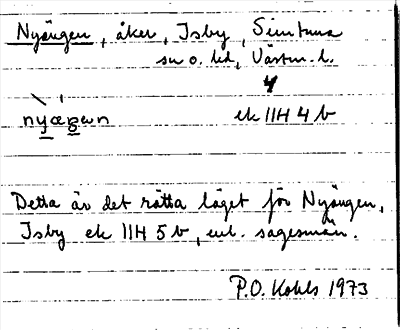 Nyängen, åker, Isby, Simtuna
sn o. hd, Västm. l.
4
nyæŋen ek 11H 4 b
Detta är det rätta läget för Nyängen,
Isby ek 11H 5 b, enl. sagesmän.
P.O. Kohls 1973